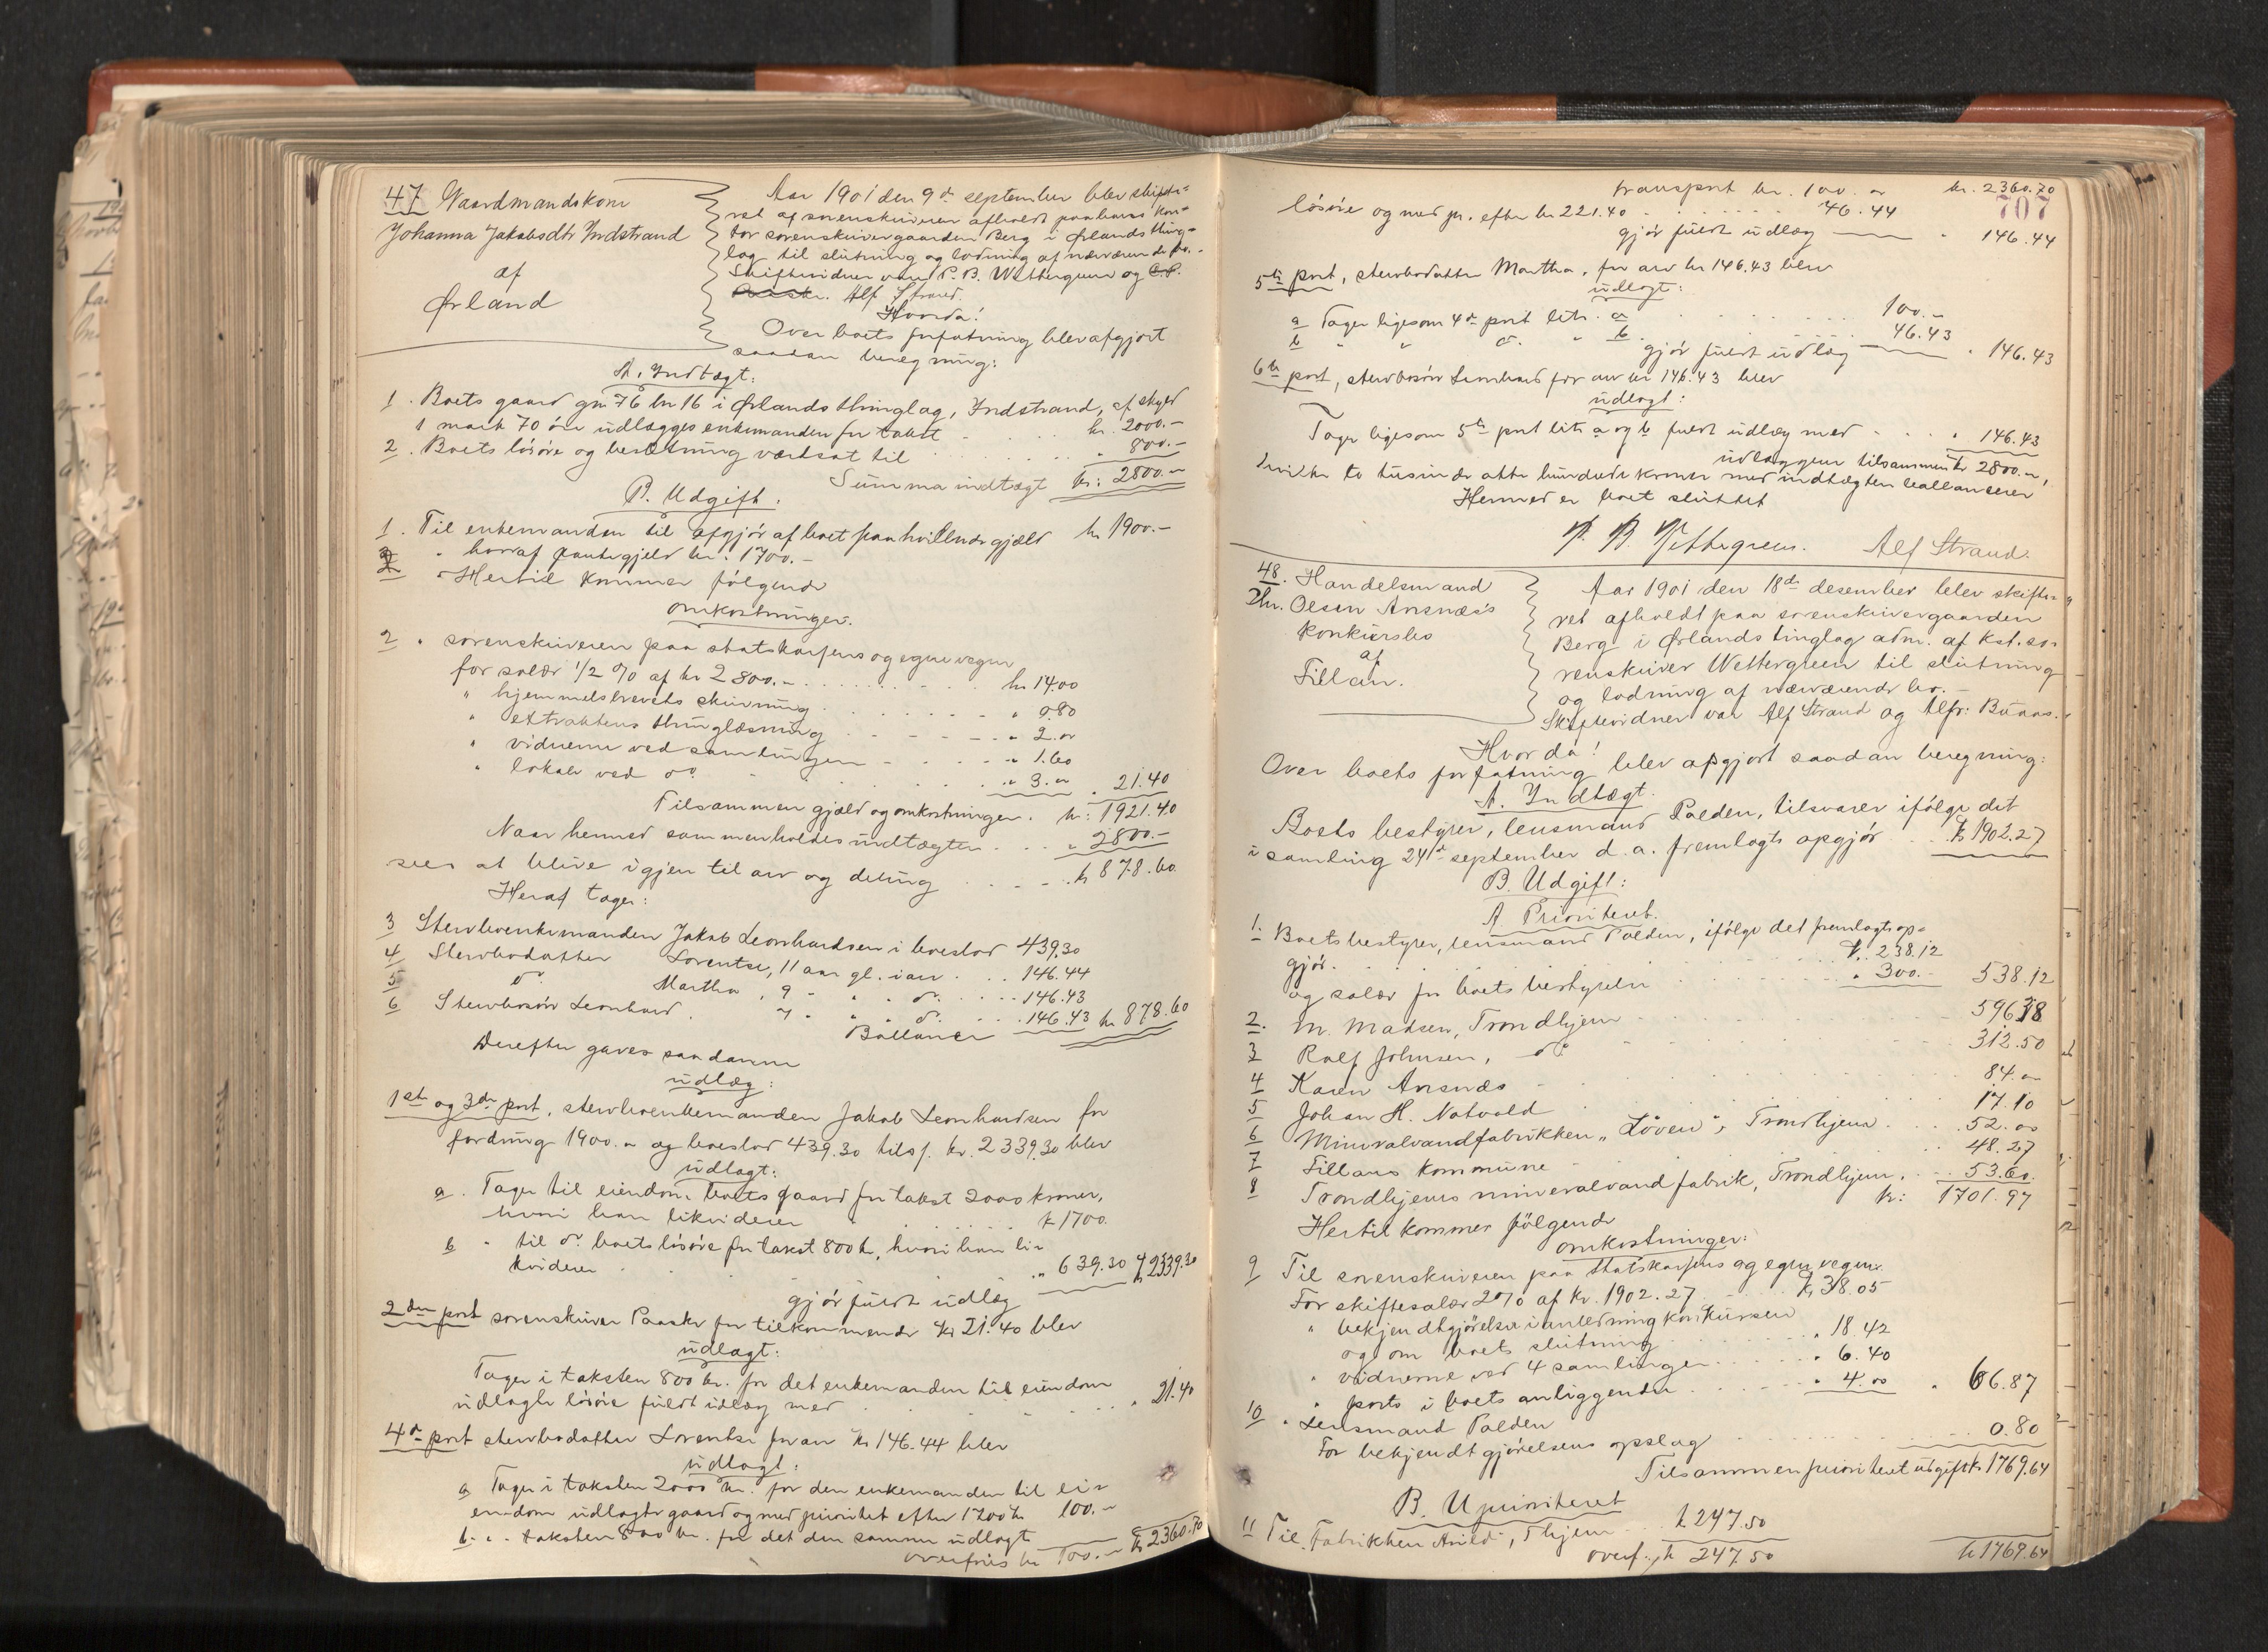 47 Gaardmandskone
Johanna Jakobsdtr Indstrand
af
Ørland
Aar 1901 den 9de september blev skifte-
ret af sorenskriveren afholdt paa hans kon-
tor sorenskrivergaarden Berg i Ørlands thing-
lag til slutning og lodning af nærværende bo.-
Skiftevidner vare P. B. Wettergreen og
Alf Strand.
Hvorda!
Over boets forfatning blev afgjort
saadan beregning:
A. Indtægt:
1. Boets gaard gn 76 bn 16 i Ørlands thinglag, Indstrand, af skyld
1 mark 70 øre udlægges enkemanden for takst kr. 2000.-
2. Boets løsøre og besætning værdsat til " 800.-
Summa indtægt kr: 2800.-
B. Udgift.
1. Til enkemanden til afgjør af boet paahvilende gjæld kr 1900.-
" hvoraf pantegjeld kr. 1700.-
Hertil kommer følgende
omkostninger.
2 " sorenskriveren paa statskassens og egne vegne
for salær 1/2 % af kr 2800.- kr 14.00
" hjemmelsbrevets skrivning " 0.80
" extraktens thinglæsning " 2.00
" vidnerne ved samlingen " 1.60
" lokale ved do " 3.00 " 21.40
Tilsammen gjæld og omkostninger. kr: 1921.40
Naar hermed sammenholdes indtægten " 2800.-
sees at blive igjen til arv og deling kr 878.60
Heraf tager:
3 Stervboenkemanden Jakob Leonhardsen i boeslod 439.30
4 Stervbodatter Lorentse, 11 aar gl. i arv 146.44
5 do Martha, 9 " " do 146.43
6 Stervbosøn Leonhard, 7 " " do 146.43 kr 878.60
Ballancer
Derefter gaves saadanne
udlæg:
1ste og 3die post, stervboenkemanden Jakob Leonhardsen for
fordring 1900.- og boeslod 439.30 tils. kr. 2339.30 blev
udlagt:
a. Tager til eiendom boets gaard for takst 2000 kroner,
hvori han likviderer kr 1700.
b " til do boets løsøre for takst 800 kr, hvori han li-
kviderer " 639.30 kr 2339.30
gjør fuldt udlæg
2den post sorenskriver Paaske for tilkommende kr 21.40 blev
udlagt:
Tager i taksten 800 kr. for det enkemanden til eiendom
udlagte løsøre fuldt udlæg med " 21.40
4de post stervbodatter Lorentse for arv kr 146.44 blev
udlagt:
a Tager i taksten 2000 kr. for den enkemanden til ei-
endom udlagte gaard og med prioritet efter 1700 kr 100.-
b. " taksten 800 kr. for det den samme udlagt
overføres kr 100.- kr 2360.70
transport kr. 100.- kr. 2360.70
707
løsøre og med pr. efter kr 221.40 46.44
gjør fuldt udlæg " 146.44
5te post, stervbodatter Martha, for arv kr 146.43 blev
udlagt:
a Tager ligesom 4de post litr. a 100.-
b " " do " b 46.43
gjør fuldt udlæg " 146.43
6te post, stervbosøn Leonhard for arv kr 146.43 blev
udlagt:
Tager ligesom 5te post litr a og b fuldt udlæg med " 146.43
udlæggene tilsammen kr 2800.-,
hvilke to tusinde otte hundrede kroner med indtægten ballancerer
Hermed er boet sluttet
P. B. Wettergreen. Alf Strand.
48. Handelsmand
Chr. Olsen Ansnæs's
konkursbo
af
Fillan.
Aar 1901 den 18de desember blev skifte-
ret afholdt paa sorenskrivergaarden
Berg i Ørlands tinglag adm. af kst. so-
renskriver Wettergreen til slutning
og lodning af nærværende bo.-
Skiftevidner var Alf Strand og Alfr: Buaas.-
Hvorda!
Over boets forfatning blev afgjort saadan beregning:
A. Indtægt.
Boets bestyrer, lensmand Palden, tilsvarer ifølge det
i samling 24de september d. a. fremlagte opgjør kr 1902.27
B. Udgift:
A Prioriteret.
1. Boets bestyrer, lensmand Palden, ifølge det fremlagte op-
gjør. kr. 238.12
og salær for boets bestyrelse " 300.- 538.12
2. M. Madsen, Trondhjem 596.38
3 Rolf Johnsen, do 312.50
4 Karen Ansnæs 84.-
5 Johan H. Notvold 17.10
6 Mineralvandfabrikken "Løven", Trondhjem 52.00
7 Fillans kommune 48.27
8 Trondhjems mineralvandfabrik, Trondhjem, 53.60
kr: 1701.97
Hertil kommer følgende
omkostninger:
9 Til sorenskriveren paa statskassens og egne vegne
For skiftesalær 2% af kr. 1902.27 kr 38.05
" bekjendtgjørelse i anledning konkursen
og om boets slutning " 18.42
" vidnerne ved 4 samlinger " 6.40
" porto i boets anliggender " 4.00 " 66.87
10 " Lensmand Palden
For bekjendtgjørelsens opslag 0.80
Tilsammen prioriteret udgift kr 1769.64
B. Uprioriteret
11 Til Fabrikken Arild, Thjem kr 247.50
overf. kr 247.50 kr 1769.64